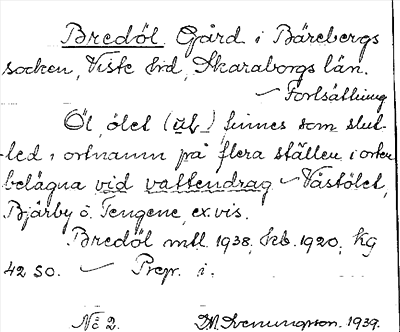 Bredöl. Gård i Bärebergs
socken, Viste hd, Skaraborgs län.
— Fortsättning
Öl, ölet (ul-) finnes som slut-
led i ortnamn på flera ställen i orten
belägna vid vattendrag — Västölet,
Bjärby ö. Tengene, ex.vis.
Bredöl mtl. 1938, hb. 1920, kg
42 SO. — Prep. i.
No 2. D.M. Svenungson. 1939.